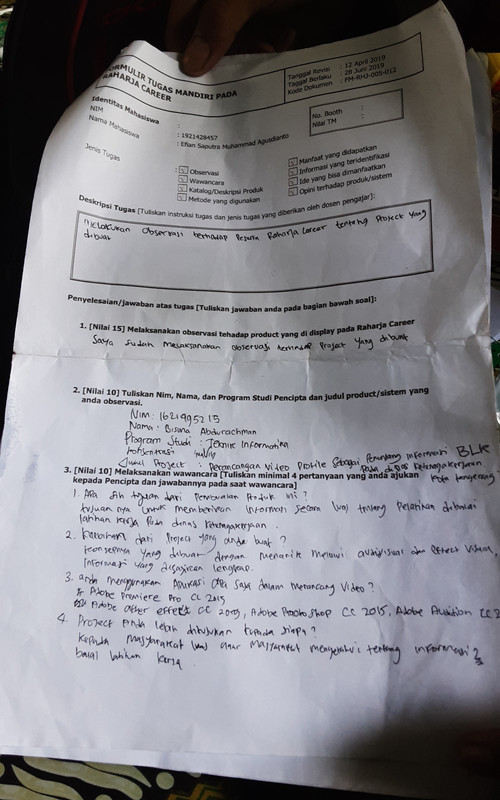 FORMULIR TUGAS MANDIRI PADA
RAHARJA CAREER
Tanggal Revisi : 12 April 2019
Tanggal Berlaku : 28 Juni 2019
Kode Dokumen : FM-RHJ-005-012
Identitas Mahasiswa :
NIM : 1921428457
Nama Mahasiswa : Efian Saputra Muhammad Agusdianto
No. Booth :
Nilai TM :
Jenis Tugas :
Observasi
Wawancara
Katalog/Deskripsi Produk
Metode yang digunakan
Manfaat yang didapatkan
Informasi yang teridentifikasi
Ide yang bisa dimanfaatkan
Opini terhadap produk/sistem
Deskripsi Tugas [Tuliskan instruksi tugas dan jenis tugas yang diberikan oleh dosen pengajar]:
Melakukan observasi terhadap Peserta Raharja Career tentang Project yang
dibuat
Penyelesaian/jawaban atas tugas [Tuliskan jawaban anda pada bagian bawah soal]:
1. [Nilai 15] Melaksanakan observasi tehadap product yang di display pada Raharja Career
Saya sudah melaksanakan observasi terhadap Project yang dibuat
2. [Nilai 10] Tuliskan Nim, Nama, dan Program Studi Pencipta dan judul product/sistem yang
anda observasi.
NIM : 1621495215
Nama : Bisma Abdurachman
Program Studi : Teknik Informatika
Judul Project : Perancangan Video Profile Sebagai Penunjang Informasi BLK
Pada dinas Ketenagakerjaan
Kota tangerang
3. [Nilai 10] Melaksanakan wawancara [Tuliskan minimal 4 pertanyaan yang anda ajukan
kepada Pencipta dan jawabannya pada saat wawancara]
1. Apa sih tujuan dari Pembuatan Produk ini ?
tujuan nya untuk memberikan informasi secara luas tentang Pelatihan dibalai
latihan kerja Pada dinas Ketenagakerjaan.
2. Kelebihan dari Project yang anda buat ?
Konsepnya yang dibuat dengan menarik melalui audiovisual dan effect visual,
Informasi yang disajikan lengkap.
3. anda menggunakan Aplikasi apa saja dalam merancang Video ?
Adobe Premiere Pro CC 2015
Adobe after effect CC 2015, Adobe Photoshop CC 2015, Adobe Audition CC 2
4. Project Anda lebih ditujukan kepada siapa ?
Kepada masyarakat luas agar masyarakat mengetahui tentang informasi
balai latihan kerja.